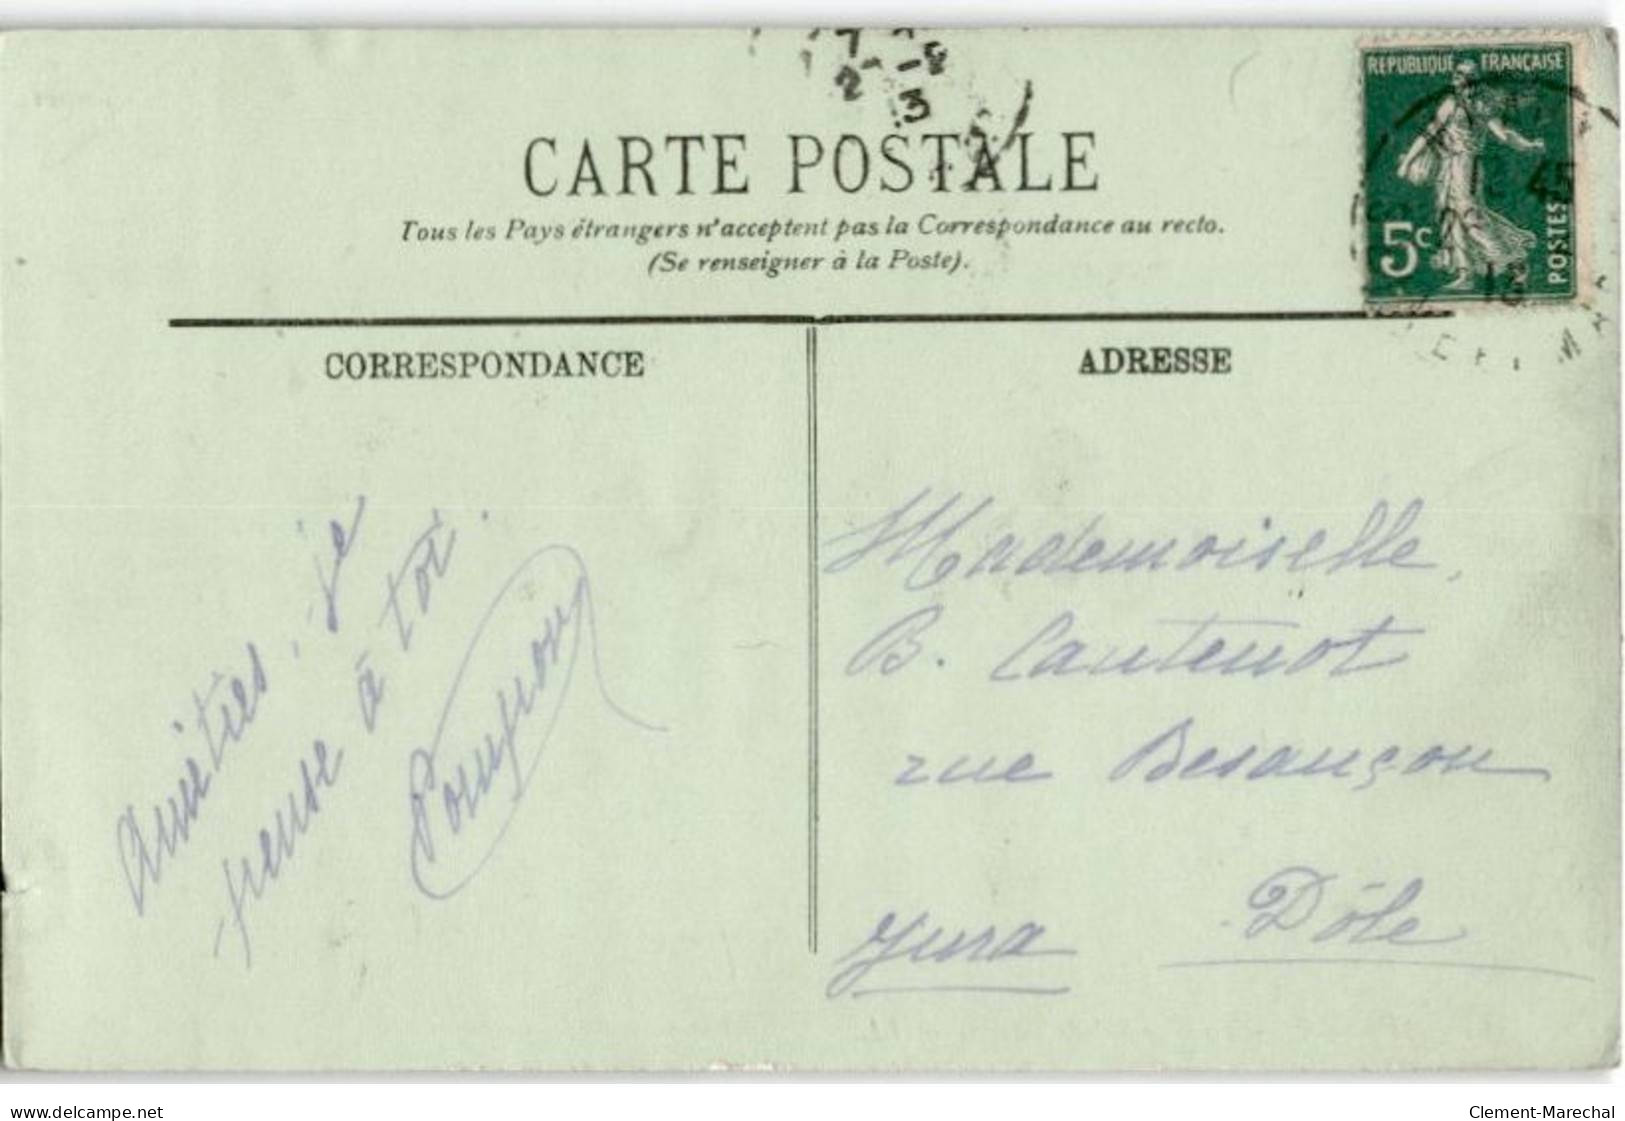 REPUBLIQUE FRANÇAISE
45
5c
POSTES
CARTE POSTALE
Tous les Pays étrangers n'acceptent pas la Correspondance au recto.
(Se renseigner à la Poste).
CORRESPONDANCE
Amitiés, je
pense à toi.
ADRESSE
Mademoiselle
B. Cautenot
rue Besançon
Dôle
Jura
delcampe.net
Clement-Marechal